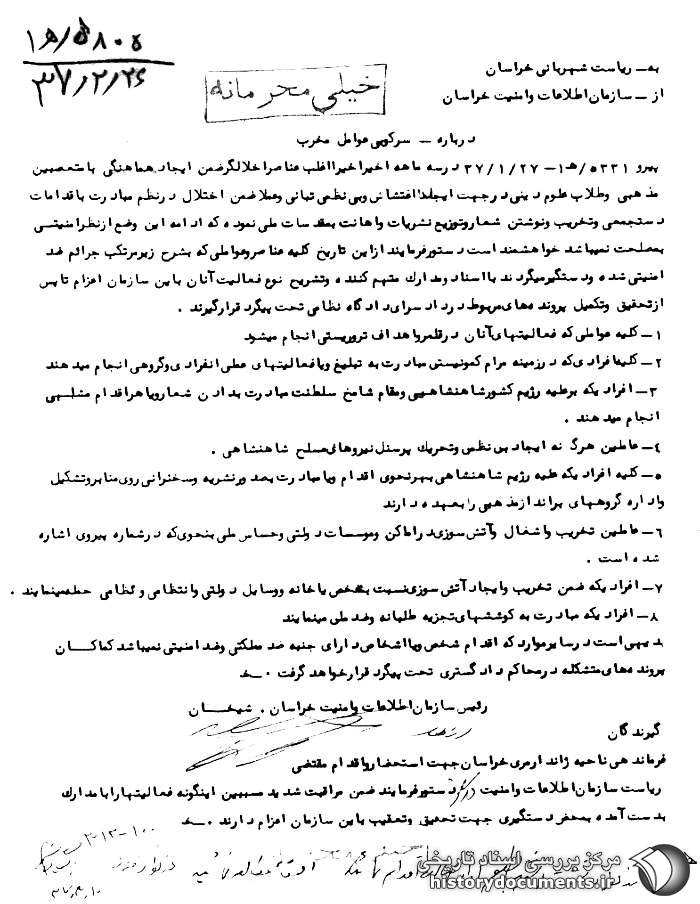 ۱ه‍/۵۸۰۵
۳۷/۲/۲۶
خیلی محرمانه
به ـ ریاست شهربانی خراسان
از ـ سازمان اطلاعات و امنیت خراسان
درباره ـ سرکوبی عوامل مخرب
پیرو ۵۳۳۱/ه‍۱ـ ۳۷/۱/۲۷ درسه ماهه اخیر اخیرا اغلب عناصر اخلالگر ضمن ایجاد هماهنگی با متعصبین
مذهبی وطلاب علوم دینی درجهت ایجاد اغتشاش وبی نظمی تبانی وعملا ضمن اختلال درنظم مبادرت باقدامات
دستجمعی وتخریب ونوشتن شعار وتوزیع نشریات واهانت بمقدسات ملی نموده که ادامه این وضع ازنظر امنیتی
بمصلحت نمیباشد خواهشمند است دستورفرمایند ازاین تاریخ کلیه عناصر وعواملی که بشرح زیر مرتکب جرائم ضد
امنیتی شده ودستگیر میگردند با اسناد ومدارک متهم کننده وتشریح نوع فعالیت آنان باین سازمان اعزام تا پس
از تحقیق وتکمیل پرونده های مربوط در دادسرای دادگاه نظامی تحت پیگرد قرارگیرند .
۱ـ کلیه عواملی که فعالیتهای آنان درقلمرو اهداف تروریستی انجام میشود
۲ـ کلیه افرادی که درزمینه مرام کمونیستی مبادرت به تبلیغ ویا فعالیتهای عملی انفرادی وگروهی انجام میدهند
۳ـ افرادیکه برعلیه رژیم کشورشاهنشاهی ومقام شامخ سلطنت مبادرت بدادن شعار ویا هراقدام مشابهی
انجام میدهند .
٤ـ عاملین هرگونه ایجاد بی نظمی وتحریک پرسنل نیروهای مسلح شاهنشاهی .
۵ـ کلیه افرادیکه علیه رژیم شاهنشاهی بهرنحوی اقدام ویا مبادرت بصدور نشریه وسخنرانی روی منابر وتشکیل
واداره گروههای برانداز مذهبی را بعهده دارند
۶ـ عاملین تخریب واشغال وآتش سوزی در اماکن وموسسات دولتی وحساس ملی بنحوی که درشماره پیروی اشاره
شده است .
۷ـ افرادیکه ضمن تخریب وایجاد آتش سوزی نسبت بشخص یا خانه ووسایل دولتی وانتظامی ونظامی حمله مینمایند .
۸ـ افرادیکه مبادرت به کوششهای تجزیه طلبانه وضد ملی مینمایند
بدیهی است درسایر موارد که اقدام شخص ویا اشخاص دارای جنبه ضد مملکتی وضد امنیتی نمیباشد کماکان
پرونده های متشکله درمحاکم دادگستری تحت پیگرد قرارخواهد گرفت .
رئیس سازمان اطلاعات وامنیت خراسان . شیخان
گیرندگان
فرماندهی ناحیه ژاندارمری خراسان جهت استحضار واقدام مقتضی
ریاست سازمان اطلاعات وامنیت دستورفرمایند ضمن مراقبت شدید مسببین اینگونه فعالیتها را با مدارک
بدست آمده بمحض دستگیری جهت تحقیق وتعقیب باین سازمان اعزام دارند .
۳۱۲-۱۰۰
مرکز بررسی اسناد تاریخی
historydocuments.ir